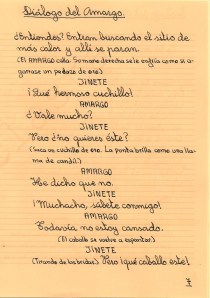 Diálogo del Amargo.
¿Entiendes? Entran buscando el sitio de
más calor y allí se paran.
(El AMARGO calla. Su mano derecha se le enfría como si a-
garrase un pedazo de oro.)
JINETE
¡Qué hermoso cuchillo!
AMARGO
¿Vale mucho?
JINETE
Pero ¿no quieres éste?
(Saca un cuchillo de oro. La punta brilla como una lla-
ma de candil.)
AMARGO
He dicho que no.
JINETE
¡Muchacho, súbete conmigo!
AMARGO
Todavía no estoy cansado.
(El caballo se vuelve a espantar.)
JINETE
(Tirando de las bridas.) Pero ¡qué caballo este!